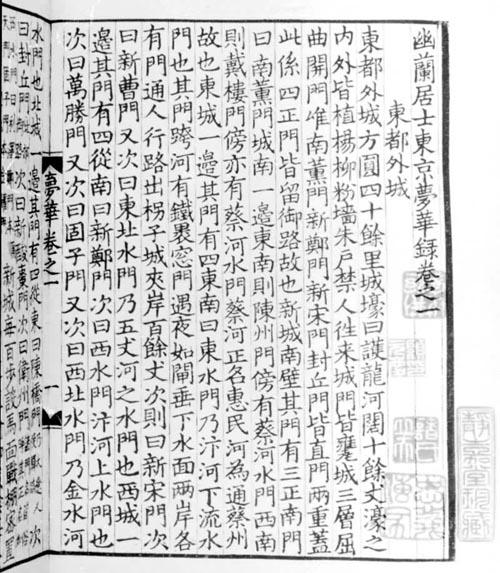 幽蘭居士東京夢華録卷之一
東都外城
東都外城方圓四十餘里城壕曰護龍河闊十餘丈濠之
内外皆植楊柳粉墻朱戸禁人徃来城門皆甕城三層屈
曲開門唯南薰門新鄭門新宋門封丘門皆直門兩重蓋
此係四正門皆留御路故也新城南壁其門有三正南門
曰南薰門城南一邊東南則陳州門傍有蔡河水門西南
則戴樓門傍亦有蔡河水門蔡河正名惠民河為通蔡州
故也東城一邊其門有四東南曰東水門乃汴河下流水
門也其門跨河有鐵裹窓門遇夜如閘垂下水面兩岸各
有門通人行路出拐子城夾岸百餘丈次則曰新宋門次
曰新曹門又次曰東北水門乃五丈河之水門也西城一
邊其門有四從南曰新鄭門次曰西水門汴河上水門也
次曰萬勝門又次曰固子門又次曰西北水門乃金水河
夢華卷之一
一
水門也北城一邊其門有四從東曰陳橋門
次
曰封丘門
次曰新酸棗門次曰衛州門
新城每百歩設馬面戰棚密置